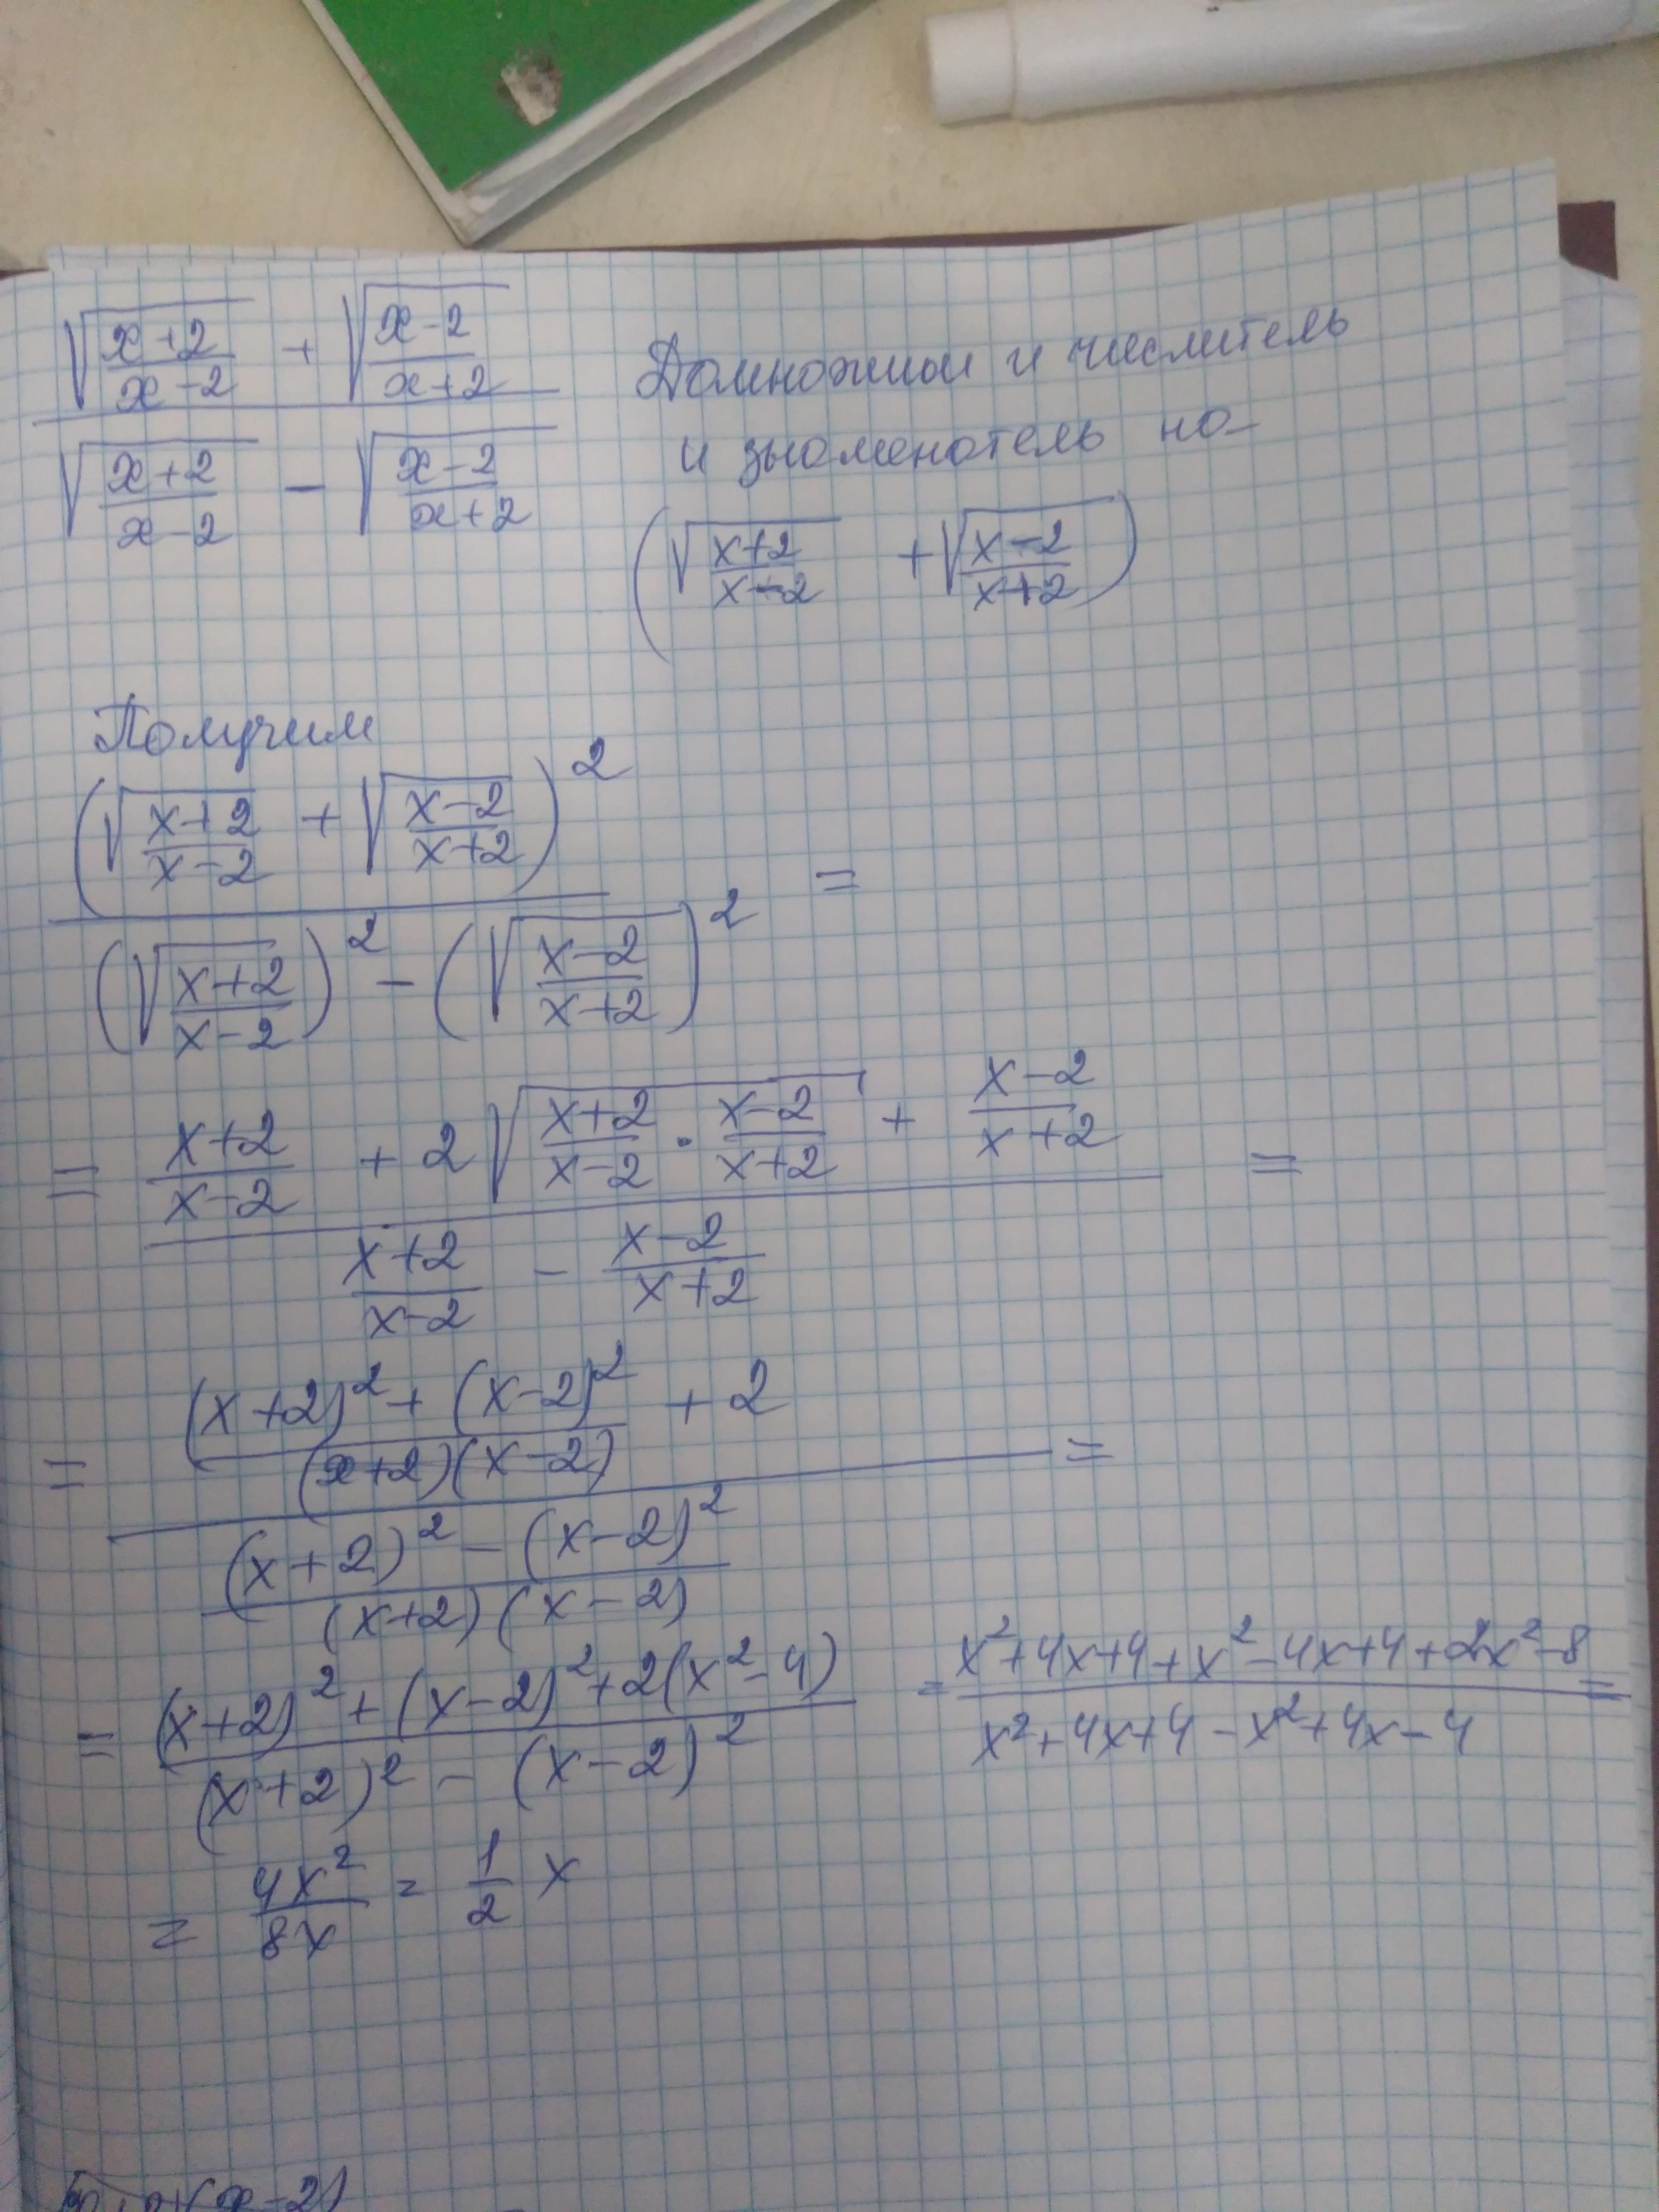 √((x+2)/(x-2)) + √((x-2)/(x+2))
√((x+2)/(x-2)) - √((x-2)/(x+2))
Домножим и числитель
и знаменатель на
(√((x+2)/(x-2)) + √((x-2)/(x+2)))
Получим
(√((x+2)/(x-2)) + √((x-2)/(x+2)))² =
(√((x+2)/(x-2)))² - (√((x-2)/(x+2)))²
= (x+2)/(x-2) + 2√((x+2)/(x-2) · (x-2)/(x+2)) + (x-2)/(x+2) =
(x+2)/(x-2) - (x-2)/(x+2)
= ((x+2)² + (x-2)²)/((x+2)(x-2)) + 2 =
((x+2)² - (x-2)²)/((x+2)(x-2))
= ((x+2)² + (x-2)² + 2(x²-4))/((x+2)² - (x-2)²) = (x²+4x+4+x²-4x+4+2x²-8)/(x²+4x+4-x²+4x-4) =
= 4x²/8x = 1/2 x